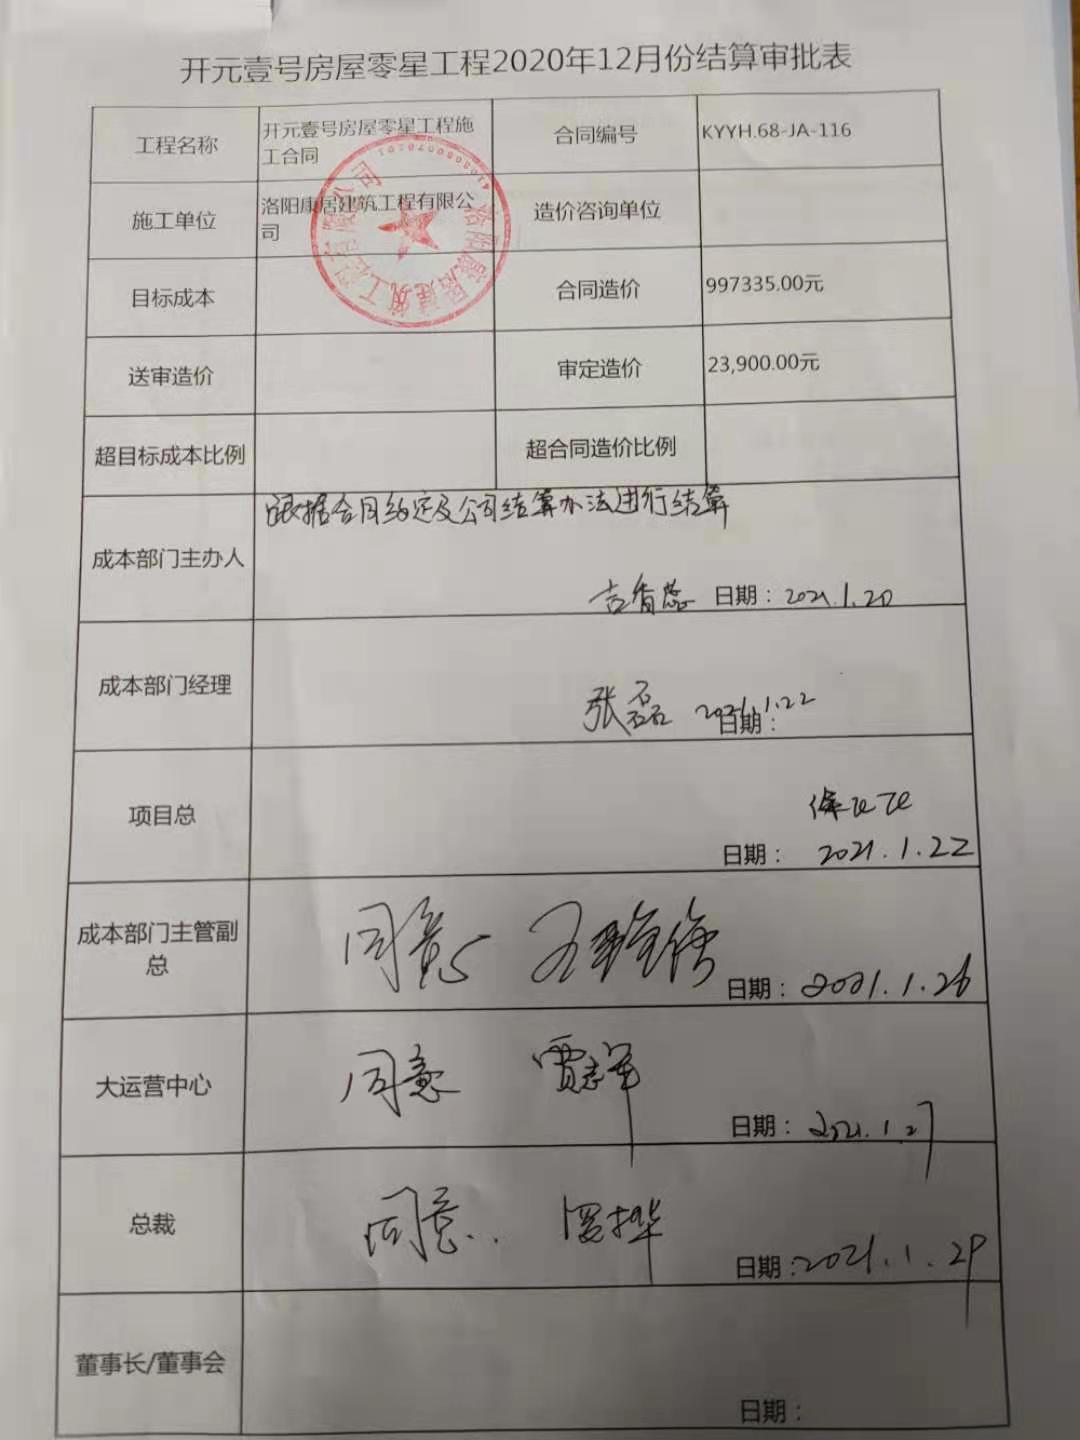 开元壹号房屋零星工程2020年12月份结算审批表
工程名称
开元壹号房屋零星工程施
工合同
合同编号
KYYH.68-JA-116
施工单位
洛阳康居建筑工程有限公
司
造价咨询单位
洛阳康居建筑工程有限公司
目标成本
合同造价
997335.00元
送审造价
审定造价
23,900.00元
超目标成本比例
超合同造价比例
成本部门主办人
根据合同约定及公司结算办法进行结算
吉香蕊 日期：2021.1.20
成本部门经理
张磊 2021.1.22
日期：
项目总
日期： 2021.1.22
成本部门主管副
总
同意
日期：2021.1.26
大运营中心
同意 贾志军
日期：2021.1.27
总裁
同意
日期：2021.1.29
董事长/董事会
日期：